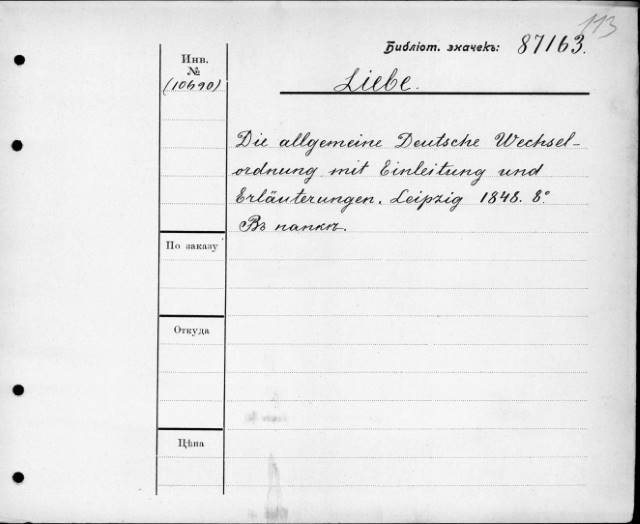 113
Библіот. значекъ: 87163.
Инв.
№
(10690)
Liebe.
Die allgemeine Deutsche Wechsel-
ordnung mit Einleitung und
Erläuterungen. Leipzig 1848. 8°.
Въ папкѣ.
По заказу
Откуда
Цѣна